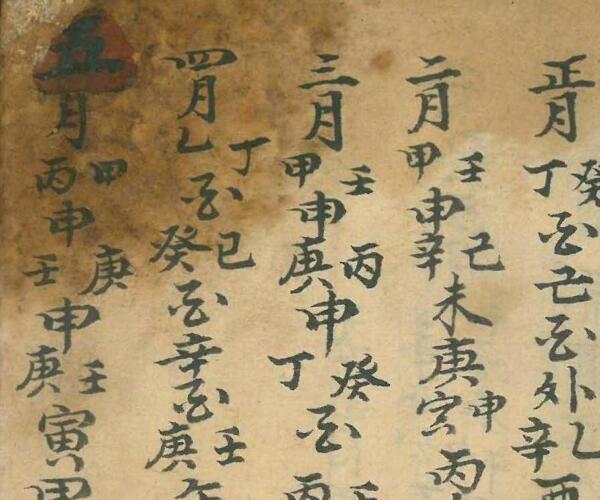 正月丁癸酉己酉外辛乙酉
二月甲壬申辛己未庚寅申丙
三月甲壬申庚丙申丁癸酉丙壬
四月乙丁酉癸巳酉辛酉庚壬午
五月丙甲申壬庚申庚壬寅甲